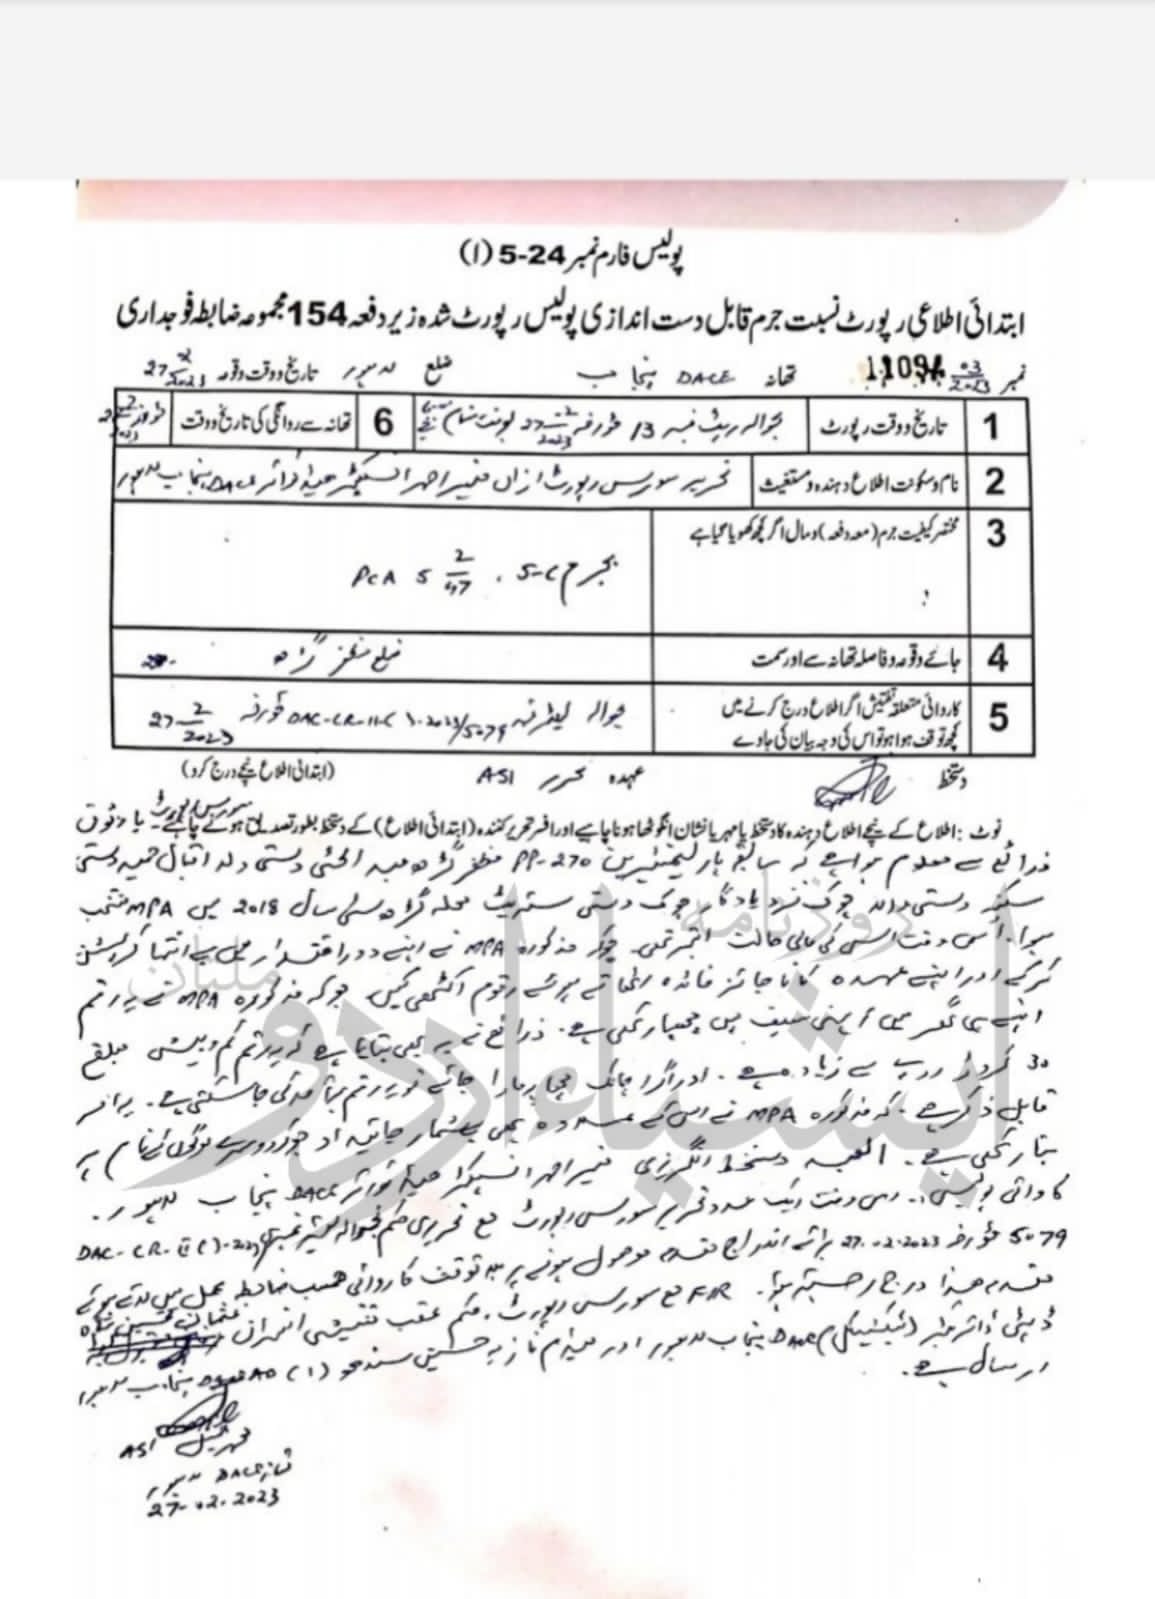 پولیس فارم نمبر 24-5 (ا)
ابتدائی اطلاعی رپورٹ نسبت جرم قابل دست اندازی پولیس رپورٹ شدہ زیر دفعہ 154 مجموعہ ضابطہ فوجداری
نمبر 03/2023 تھانہ DACE پنجاب ضلع لاہور تاریخ و وقت وقوعہ 27 2/2023
1 تاریخ و وقت رپورٹ بحوالہ رپٹ نمبر 13 مورخہ 27 2/2023 بوقت شام 6 تھانہ سے روانگی کی تاریخ و وقت
2 نام و سکونت اطلاع دہندہ و مستغیث تحریر سورس رپورٹ ازاں ضمیر احمد انسپکٹر ہیڈ کوارٹر DACE پنجاب لاہور
3 مختصر کیفیت جرم (معہ دفعہ) و مال اگر کچھ کھویا گیا ہے بجرم 5-C ، 5 2/47 PCA
4 جائے وقوعہ و فاصلہ تھانہ سے اور سمت ضلع مظفر گڑھ
5 کاروائی متعلقہ تفتیش اگر اطلاع درج کرنے میں کچھ توقف ہوا ہو تو اس کی وجہ بیان کی جاوے بحوالہ لیٹر نمبر DAC-CR-II-( )-2023/5079 مورخہ 27 2/2023
دستخط عہدہ محرر ASI (ابتدائی اطلاع نیچے درج کرو)
نوٹ: اطلاع کے نیچے اطلاع دہندہ کا دستخط یا مہر یا نشان انگوٹھا ہونا چاہیے اور افسر تحریر کنندہ (ابتدائی اطلاع) کے دستخط بطور تصدیق ہونے چاہیے۔ سورس رپورٹ باوثوق
ذرائع سے معلوم ہوا ہے کہ سابقہ پارلیمنٹیرین PP-270 مظفر گڑھ عبد الحئی دستی ولد اقبال حمید دستی
سکنہ دستی ہاوس چوک نزد یادگار چوک دستی سٹریٹ محلہ گڑھ سال 2018 میں MPA منتخب
ہوا۔ اس وقت اسکی مالی حالت ابتر تھی۔ چونکہ مذکورہ MPA نے اپنے دور اقتدار میں بے انتہا کرپشن
کرکے اور اپنے عہدہ کا ناجائز فائدہ اٹھاتے ہوئے رقوم اکٹھی کیں جو کہ مذکورہ MPA نے یہ رقم
اپنے ہی گھر میں اپنی سیف میں چھپا رکھی ہے۔ ذرائع نے یہ بھی بتایا ہے کہ یہ رقم کم و بیش مبلغ
30 کروڑ روپے سے زیادہ ہے۔ اور اگر اچانک چھاپہ مارا جائے تو یہ رقم برآمد کی جا سکتی ہے۔ یہ امر
قابل ذکر ہے کہ مذکورہ MPA نے اس کے علاوہ بھی بے شمار جائیداد جو کہ دوسرے لوگوں کے نام پر
بنا رکھی ہے۔ العبد دستخط انگریزی ضمیر احمد انسپکٹر ہیڈ کوارٹر DACE پنجاب لاہور۔
کاروائی پولیس:۔ اس وقت ایک عدد تحریر سورس رپورٹ مع تحریری حکم بحوالہ لیٹر نمبری DAC-CR-II( )-2023
5079 مورخہ 27.02.2023 برائے اندراج مقدمہ موصول ہونے پر بلا توقف کاروائی حسب ضابطہ عمل میں لاتے ہوئے
مقدمہ ہذا درج رجسٹر ہوا۔ FIR مع سورس رپورٹ، حکم عقب تفتیشی افسران
ڈپٹی ڈائریکٹر (ٹیکنیکل) DACE پنجاب لاہور اور میڈم نازیہ سندھو (I) AD پنجاب لاہور
ارسال ہے۔
ASI
تھانہ DACE لاہور
27.02.2023
روزنامہ
ایشیاء اردو
ملتان